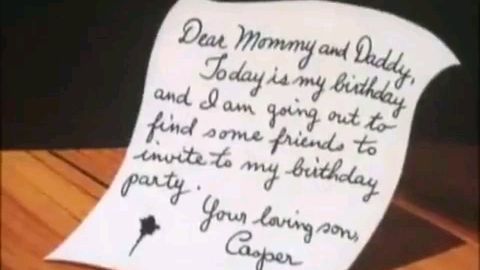 Dear Mommy and Daddy,
Today is my birthday
and I am going out to
find some friends to
invite to my birthday
party.
Your loving son,
Casper